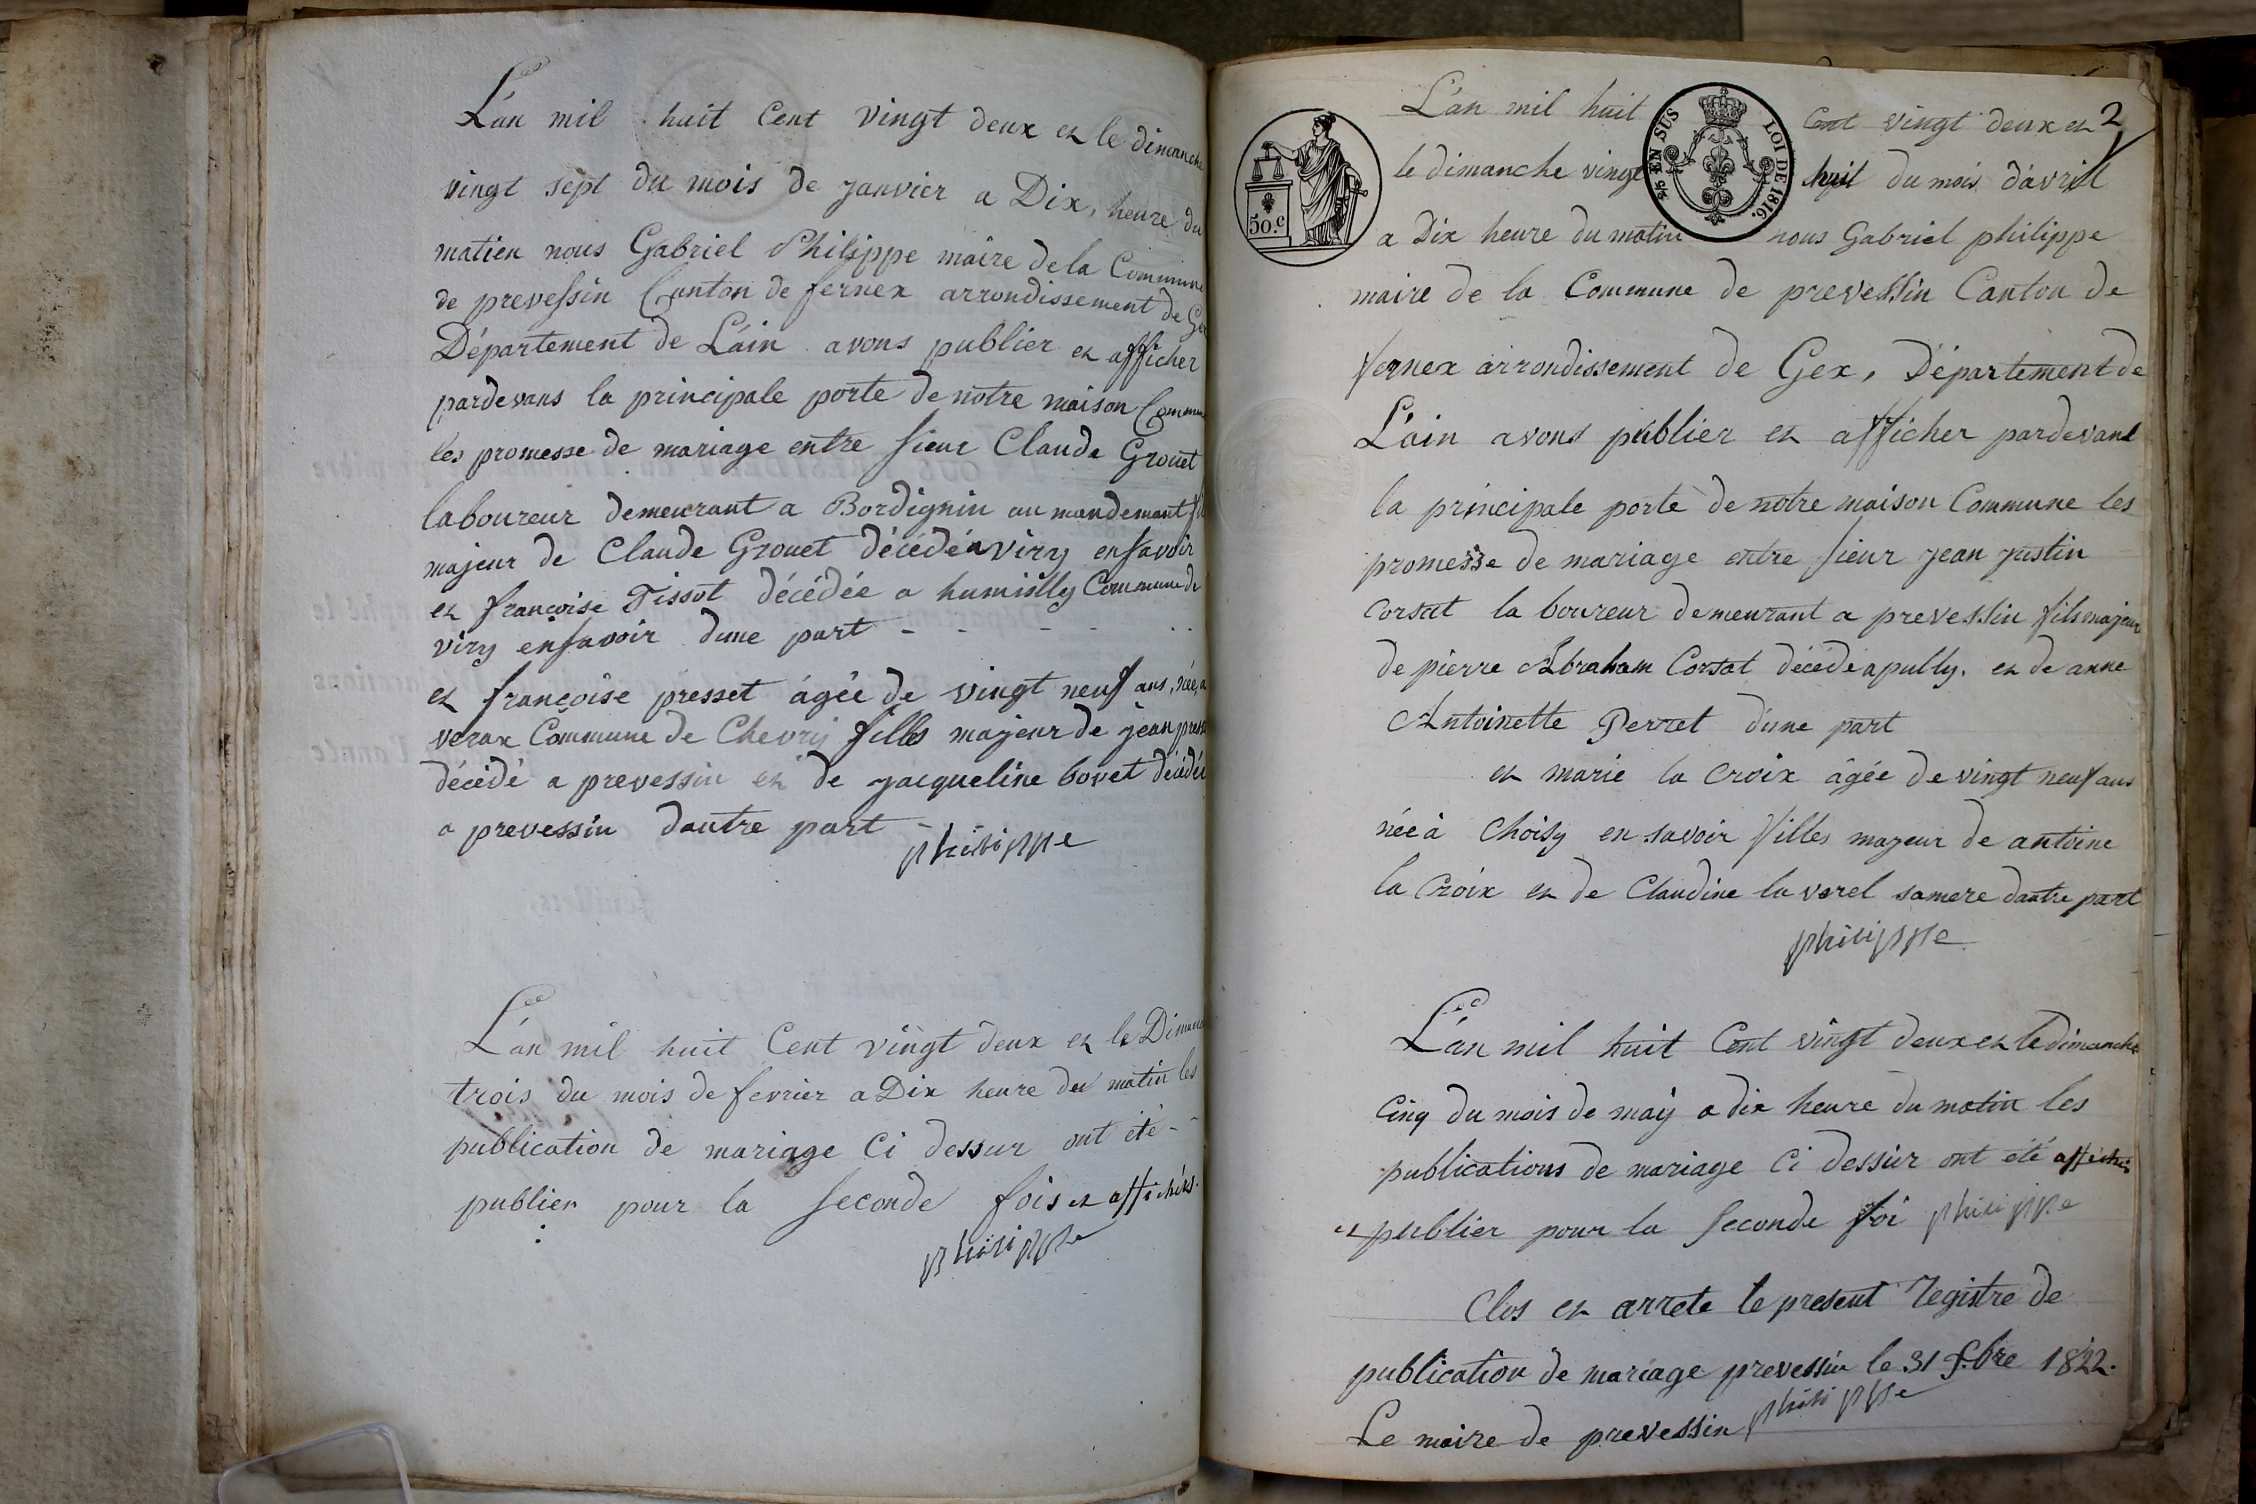 L'an mil huit Cent vingt deux et le dimanche
vingt sept du mois de janvier a Dix, heure du
matien nous Gabriel Philippe maire de la Commune
de prevessin Canton de fernex arrondissement de Gex
Département de L'ain avons publier et afficher
pardevans la principale porte de notre maison Commune
les promesse de mariage entre sieur Claude Grouet
laboureur demeurant a Bordignin au mandemant fils
majeur de Claude Grouet décédé a viry ensavoir
et françoise Tissot décédée a humislly Commune de
viry ensavoir dune part - - - - - -
et françoise presset àgée de vingt neuf ans, née, a
verax Commune de Chevry filles majeur de jean presset
décédé a prevessin et de jacqueline bovet décédée
a prevessin dautre part -
philippe
L'an mil huit Cent vingt deux et le Dimanche
trois du mois de fevrier a Dix heure du matin les
publication de mariage Ci dessur ont été -
publier pour la seconde fois et affichés.
philippe
2
50.c
¼ EN SUS
LOI DE 1816.
L'an mil huit Cent vingt deux et
le dimanche vingt huit du mois d'avril
a Dix heure du matin nous Gabriel philippe
maire de la Commune de prevessin Canton de
fernex arrondissement de Gex, Département de
L'ain avons publier et afficher pardevant
la principale porte de notre maison Commune les
promesse de mariage entre sieur jean justin
Corsat la boureur demeurant a prevessin fils majeur
de pierre Abraham Corsat décédé a pully. et de anne
Antoinette Perret d'une part
et marie la croix âgée de vingt neuf ans
née à Choisy en savoir filles majeur de antoine
la Croix et de Claudine la verel samere dautre part
philippe
L'an mil huit Cent vingt deux et le dimanche
Cinq du mois de maÿ a dix heure du matin les
publications de mariage Ci dessur ont été affichés
et publier pour la seconde foi philippe
Clos et arrete le present registre de
publication de mariage prevessin le 31 .bre 1822.
Le maire de prevessin philippe